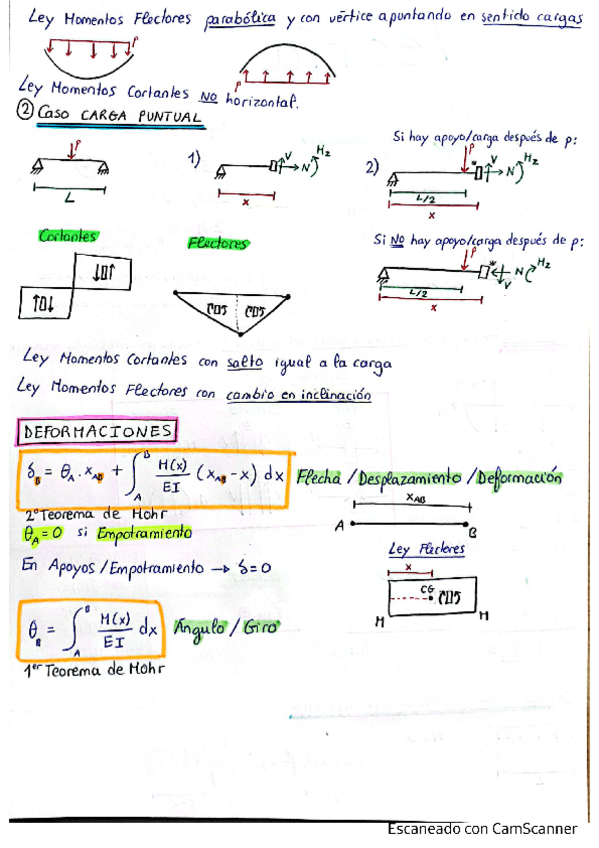 Ley Momentos Flectores parabólica y con vértice apuntando en sentido cargas
P
P
Ley Momentos Cortantes NO horizontal.
② CASO CARGA PUNTUAL
Si hay apoyo/carga después de p:
P
L
1)
V
N
Mz
x
2)
P
*
V
N
Mz
L/2
x
Cortantes
Flectores
Si NO hay apoyo/carga después de p:
P
*
N
V
Mz
L/2
x
Ley Momentos Cortantes con salto igual a la carga
Ley Momentos Flectores con cambio en inclinación
DEFORMACIONES
δB = θA · xAB + ∫AB M(x)/EI (xAB - x) dx Flecha / Desplazamiento / Deformación
2º Teorema de Mohr
θA = 0 si Empotramiento
xAB
A
B
En Apoyos / Empotramiento → δ = 0
Ley Flectores
x
CG
M
M
θB = ∫AB M(x)/EI dx Ángulo / Giro
1er Teorema de Mohr
Escaneado con CamScanner